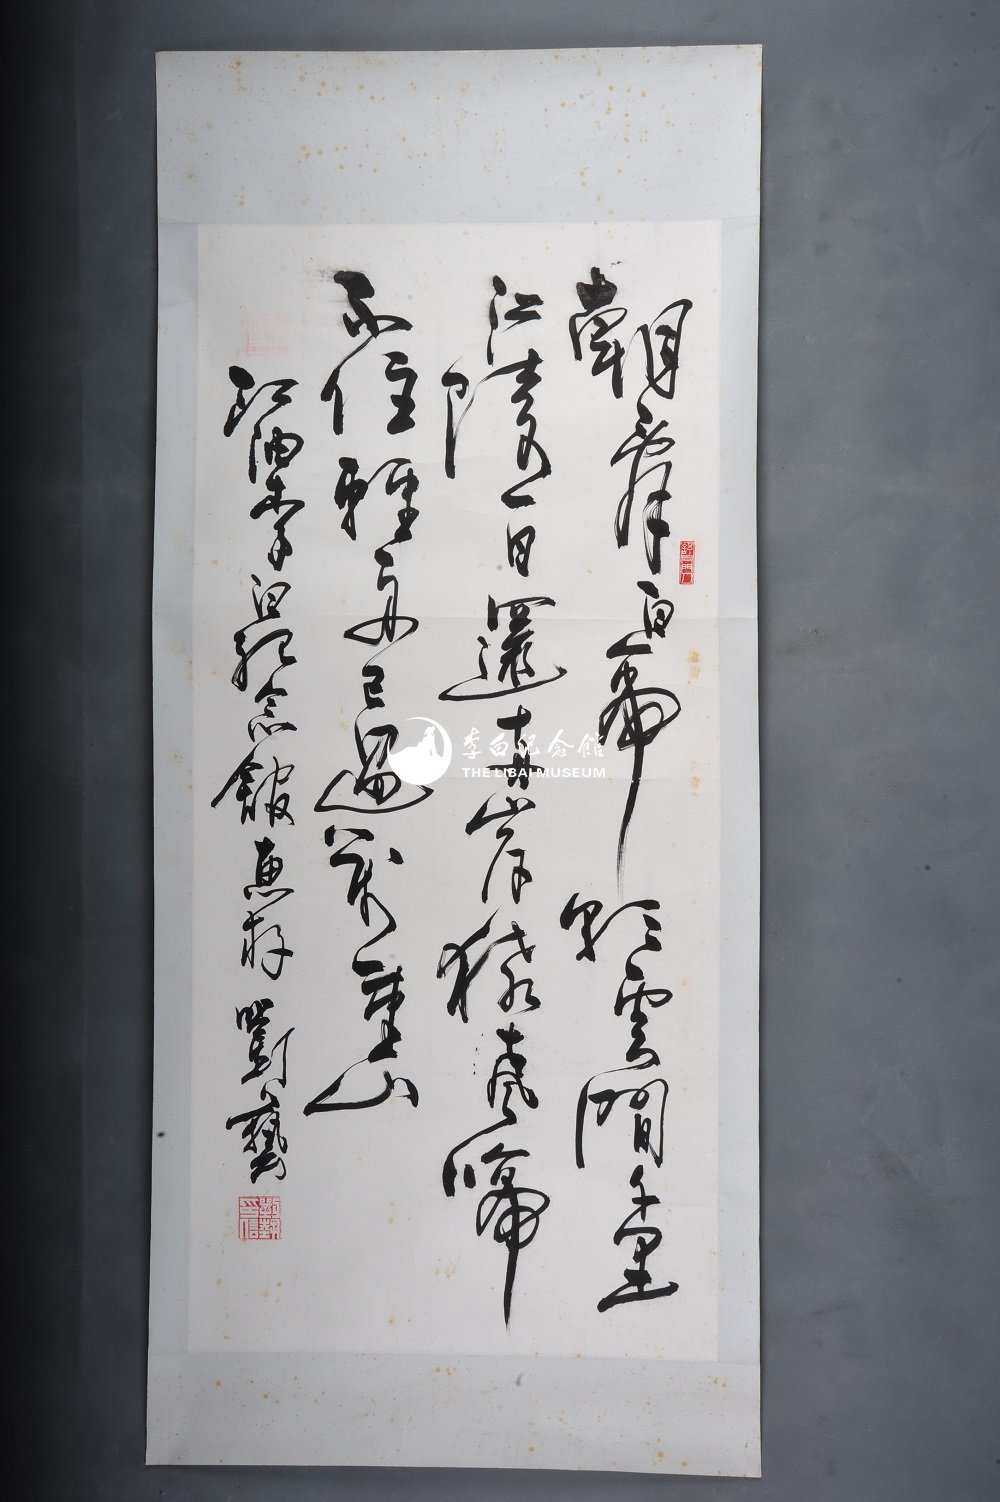 朝辭白帝彩雲間千里
江陵一日還兩岸猿聲啼
不住輕舟已過萬重山
江油李白紀念館惠存 劉藝
劉藝印信
李白纪念館
THE LIBAI MUSEUM